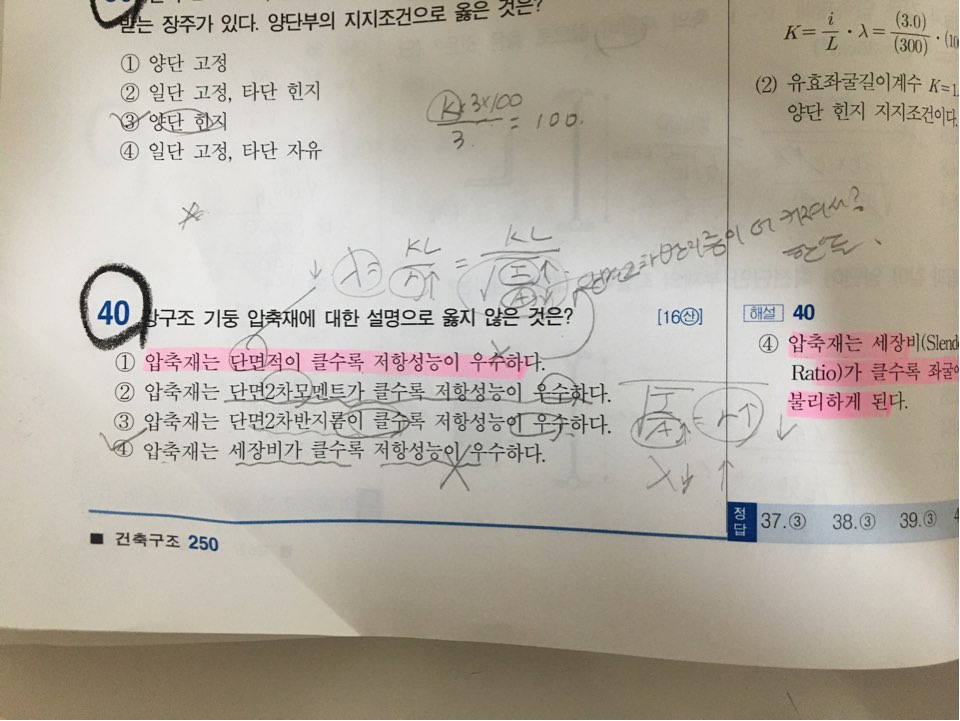 받는 장주가 있다. 양단부의 지지조건으로 옳은 것은?
① 양단 고정
② 일단 고정, 타단 힌지
③ 양단 힌지
④ 일단 고정, 타단 자유
K×3×100
3
= 100.
λ = KL / r = KL / √ I / A
40 강구조 기둥 압축재에 대한 설명으로 옳지 않은 것은? [16산]
① 압축재는 단면적이 클수록 저항성능이 우수하다.
② 압축재는 단면2차모멘트가 클수록 저항성능이 우수하다.
③ 압축재는 단면2차반지름이 클수록 저항성능이 우수하다.
④ 압축재는 세장비가 클수록 저항성능이 우수하다.
√ I / A = r↑
λ
■ 건축구조 250
K = i / L · λ = (3.0) / (300) ·
(2) 유효좌굴길이계수 K=1.
양단 힌지 지지조건이다.
해설 40
④ 압축재는 세장비(Slend
Ratio)가 클수록 좌굴에
불리하게 된다.
정답 37.③ 38.③ 39.③ 4